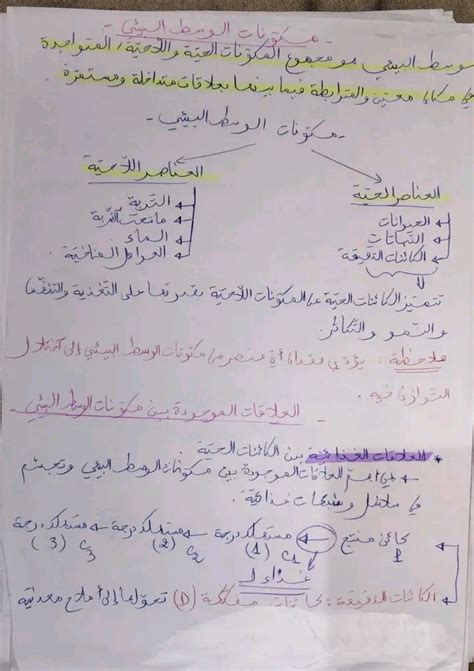 - مكونات الوسط البيئي -
الوسط البيئي هو مجموع المكونات الحية واللاحية، المتواجدة
في مكان معين والمترابطة فيما بينها بعلاقات متداخلة ومستمرة.
- مكونات الوسط البيئي -
العناصر الحية
الحيوانات
النباتات
الكائنات الدقيقة
العناصر اللاحية
التربة
ماتحت التربة
الماء
العوامل المناخية
تتميز الكائنات الحية عن المكونات اللاحية بقدرتها على التغذية والتنفس
والنمو والتكاثر.
ملاحظة: يؤدي فقدان أي عنصر من مكونات الوسط البيئي إلى اختلال
التوازن فيه.
العلاقات الموجودة بين مكونات الوسط البيئي
العلاقات الغذائية بين الكائنات الحية.
هي أهم العلاقات الموجودة بين مكونات الوسط البيئي وتجتمع
في سلاسل وشبكات غذائية.
كائن منتج P ← مستهلك درجة (1) C1 ← مستهلك درجة (2) C2 ← مستهلك درجة (3) C3
غذاء لـ
الكائنات الدقيقة: كائنات مفككة (D) تحولها إلى أملاح معدنية